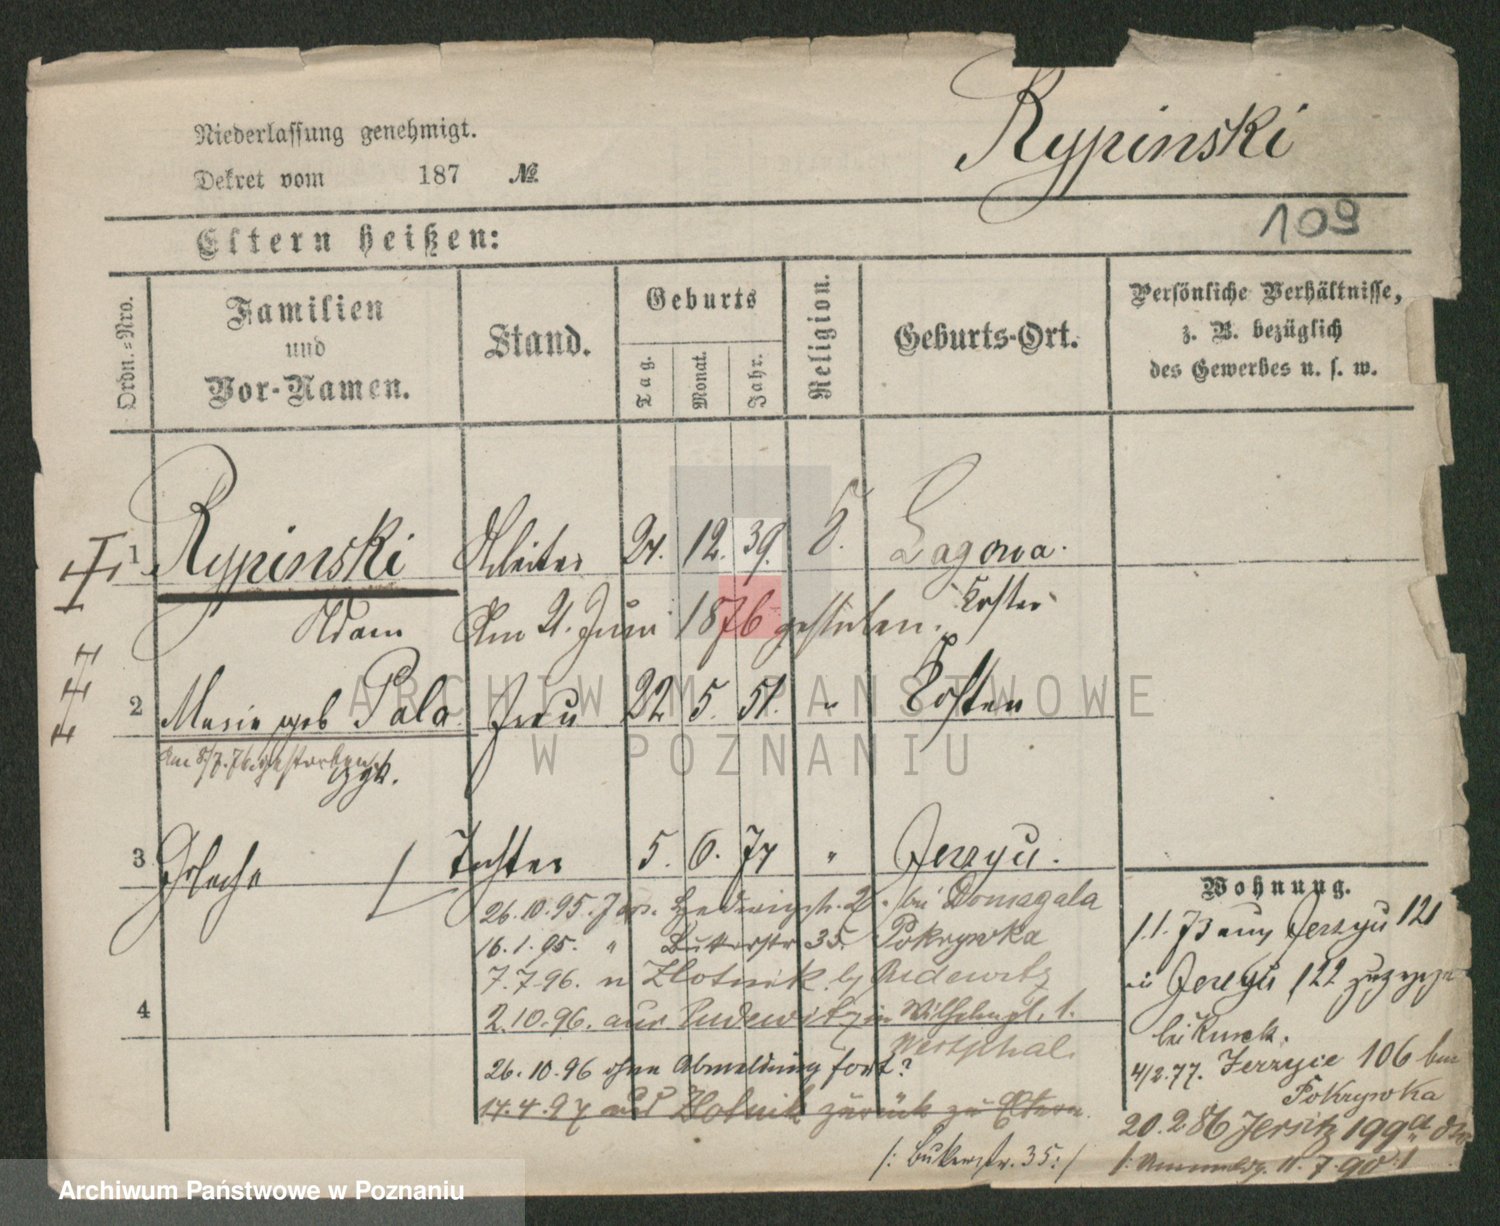 Rypinski
Niederlassung genehmigt.
Dekret vom 187 №
109
Eltern heißen:
Ordn.-Nro.
Familien
und
Vor-Namen.
Stand.
Geburts
Tag.
Monat.
Jahr.
Religion.
Geburts-Ort.
Persönliche Verhältnisse,
z. B. bezüglich
des Gewerbes u. s. w.
1 Rypinski Arbeiter 24. 12. 39. Lagowa.
Adam Am 21. Juni 1876 gestorben. Kosten
2 Marie geb Pala Frau 22 5. 51. " Kosten
Am 8/7. 76. gestorben
3 Tochter 5. 6. 74 " Jerzyu.
26.10.95. Jers. Hedwigstr. 2. bei Domagala
16.1.95. " Bukerstr 35. Pokrywka
7.7.96. n Zlotnik by Pudewitz
4 2.10.96. aus Pudewitz in Wilhelmpl. 1.
Westphal.
26.10.96 ohne Abmeldung fort?
14.4.97 aus Zlotnik zurück zu Eltern.
/: Bukerstr. 35 :/
Wohnung.
1.1.73 aus Jerzyu 121
n Jerzyu 122
bei
4/2.77. Jerzyce 106 bei
Pokrywka
20.2.86 Jersitz 199a
11.7.90 :/
ARCHIWUM PAŃSTWOWE
W POZNANIU
Archiwum Państwowe w Poznaniu